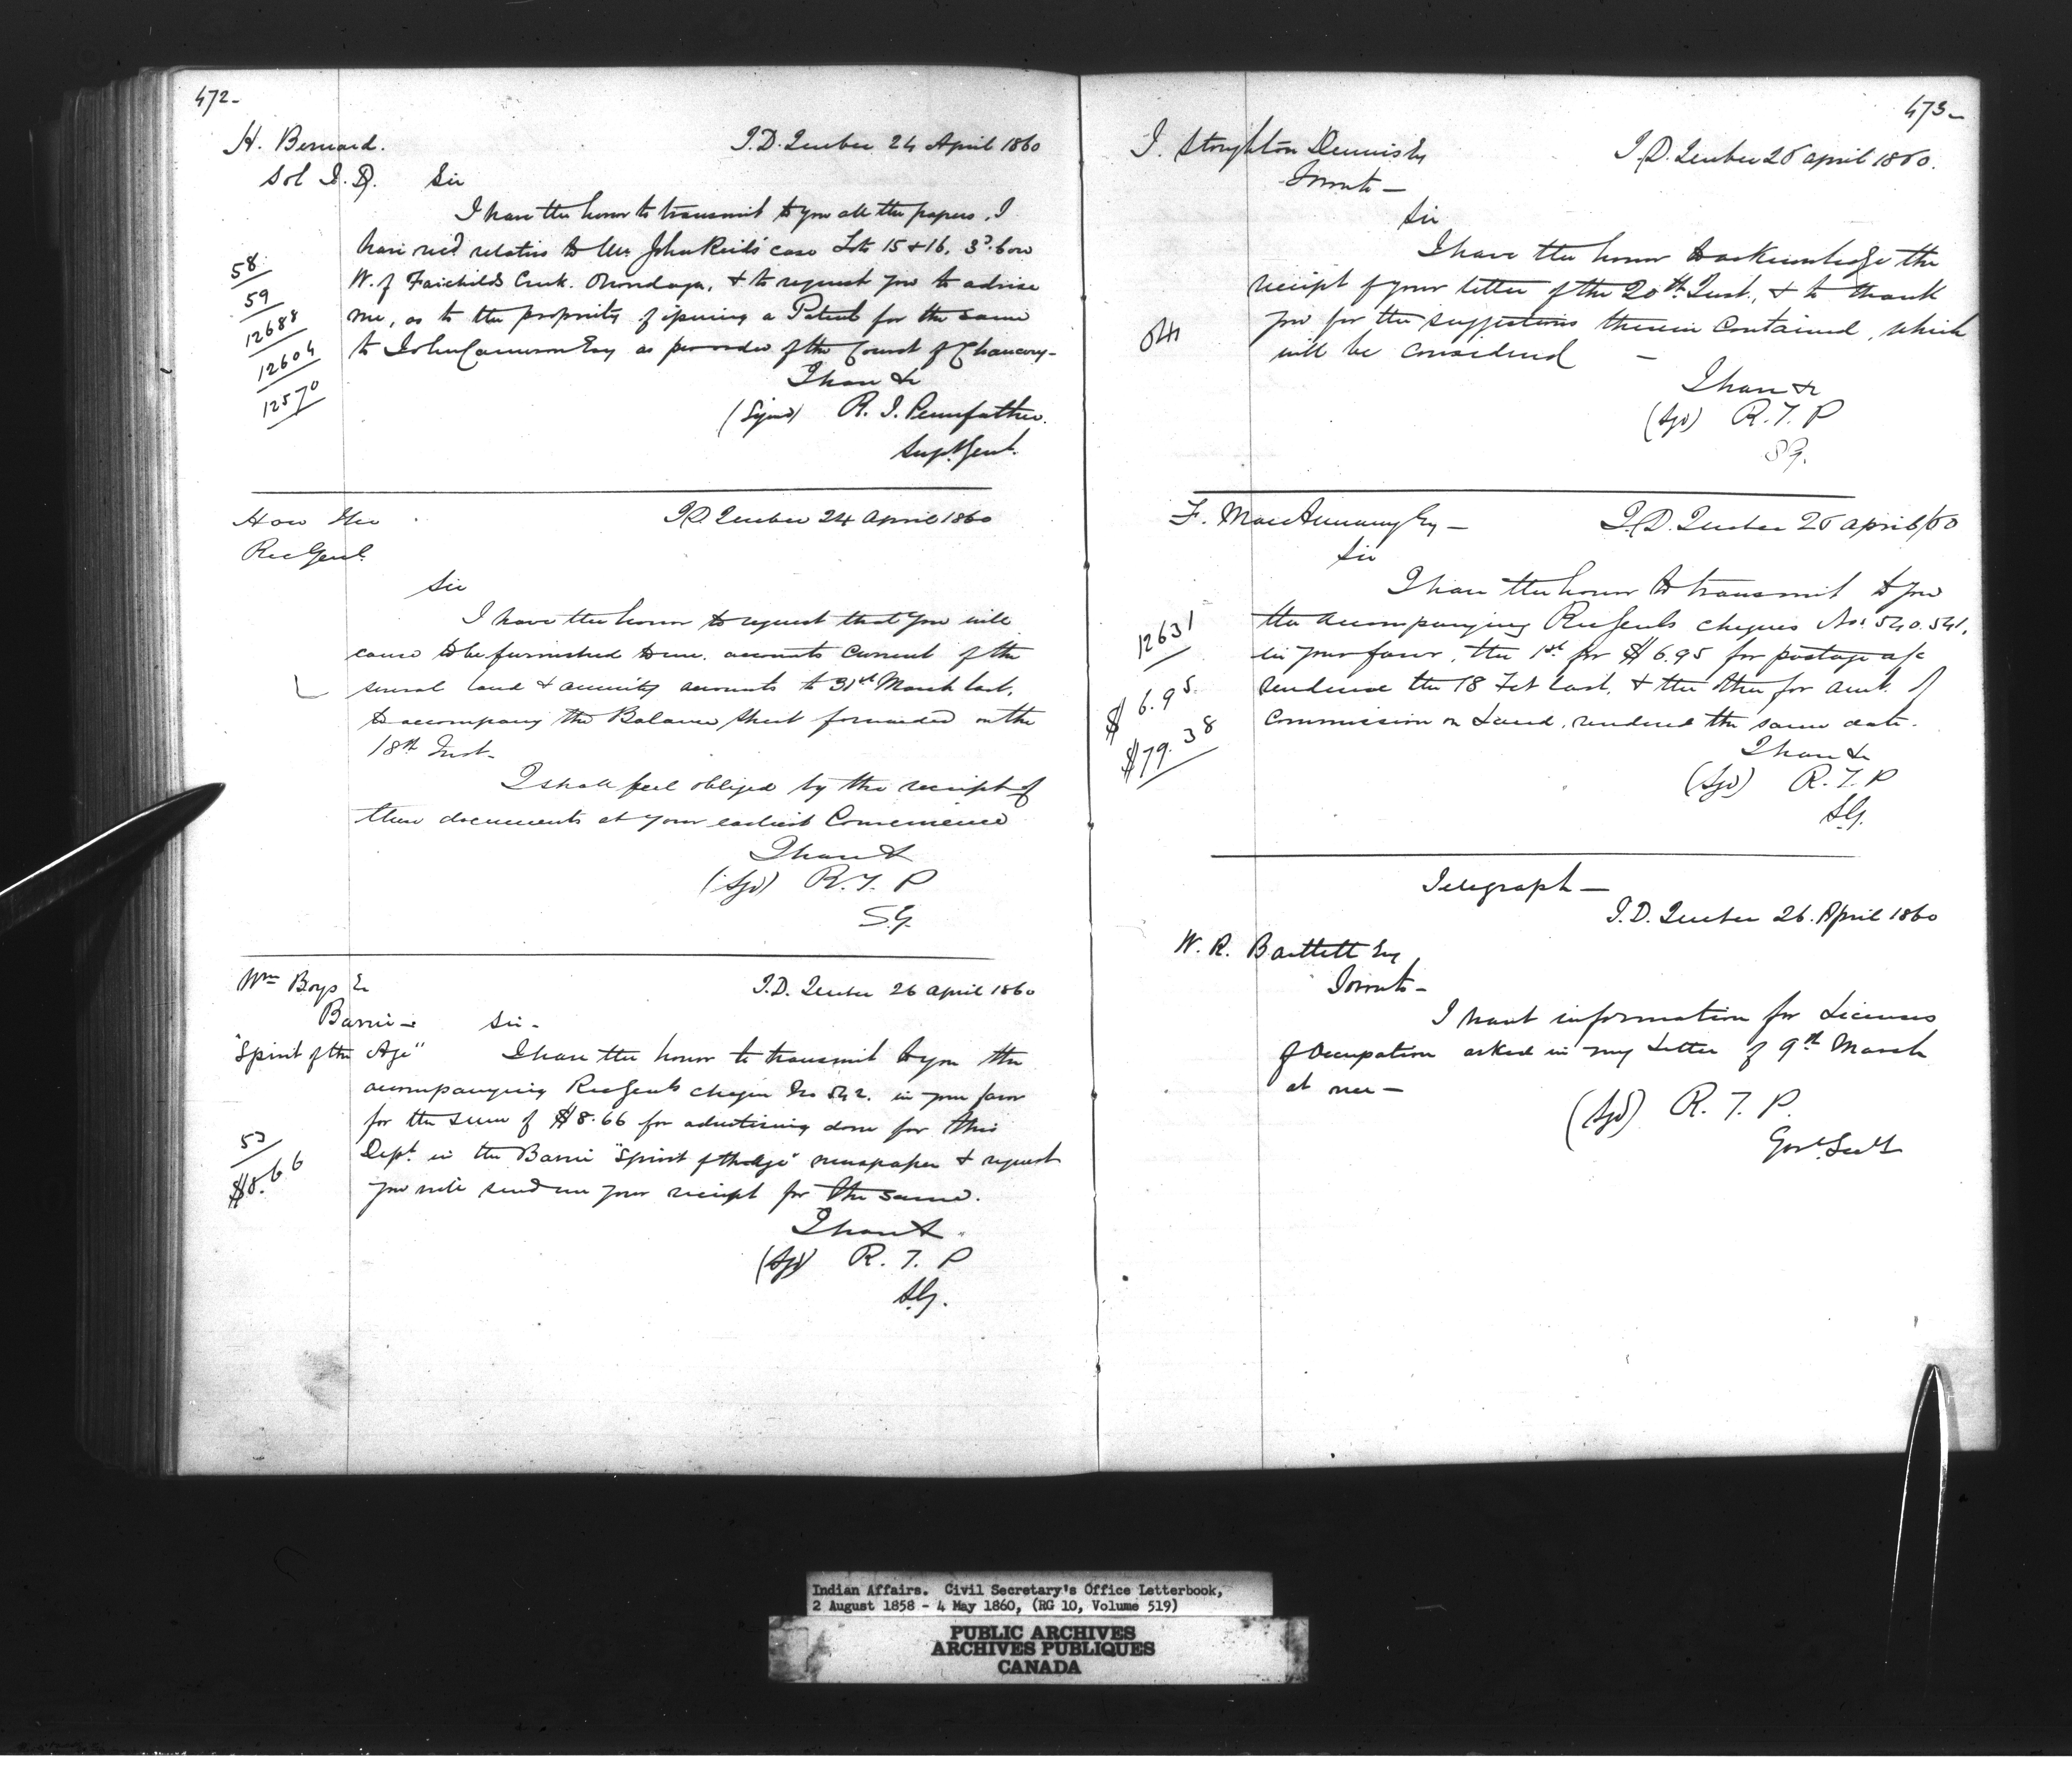 472-
H. Bernard.
Sol I.D.
I.D. Quebec 24 April 1860
Sir
I have the honor to transmit to you all the papers, I
have rec'd relative to Mr John Reid's case Lots 15 & 16. 3d Con
W. of Fairchilds Creek. Onondaga, & to request you to advise
me, as to the propriety of issuing a Patent for the same
to John Cameron Esq as per order of the Court of Chancery-
58
59
12688
12604
12570
I have &c
(Signed) R. T. Pennefather.
Supt Genl.
Hon The
Rec Genl.
I.D. Quebec 24 April 1860
Sir
I have the honor to request that you will
cause to be furnished to me. accounts current of the
several land & annuity accounts to 31st March last,
to accompany the Balance sheet forwarded on the
18th Inst-
I shall feel obliged by the receipt of
these documents at your earliest Convenience
I have &
(Sgd) R. T. P
S.G.
Wm Boys E
Barrie-
I.D. Quebec 26 April 1860
Sir-
"Spirit of the Age"
I have the honor to transmit to you the
accompanying Rec Genls cheque No 542. in your favor
for the sum of $8.66 for advertising done for this
Dept. in the Barrie "Spirit of the Age" newspaper & request
you will send me your receipt for the same.
53
$8.66
I have &.
(Sgd) R. T. P
S.G.
473-
J. Stoughton Dennis Esq
Toronto-
I.D. Quebec 26 April 1860.
Sir
I have the honor to acknowledge the
receipt of your letter of the 20th Inst., & to thank
you for the suggestions therein contained, which
will be considered -
I have &c
(Sgd) R. T. P
SG.
F. MacAnnany Esq-
I.D. Quebec 26 April/60
Sir
I have the honor to transmit to you
the accompanying Rec Genls cheques Nos 540.541.
in your favor, the 1st for $6.95 for postage a/c
rendered the 18 Feb last, & the other for amt. of
Commission on Land, rendered the same date.
12631
$6.95.
$79.38
I have &c
(Sgd) R. T. P
S.G.
Telegraph-
I.D. Quebec 26. April 1860
W. R. Bartlett Esq
Toronto-
I want information for Licenses
of Occupation asked in my Letter of 9th March
at once-
(Sgd) R. T. P.
Govr. Secy
Indian Affairs. Civil Secretary's Office Letterbook,
2 August 1858 - 4 May 1860, (RG 10, Volume 519)
PUBLIC ARCHIVES
ARCHIVES PUBLIQUES
CANADA